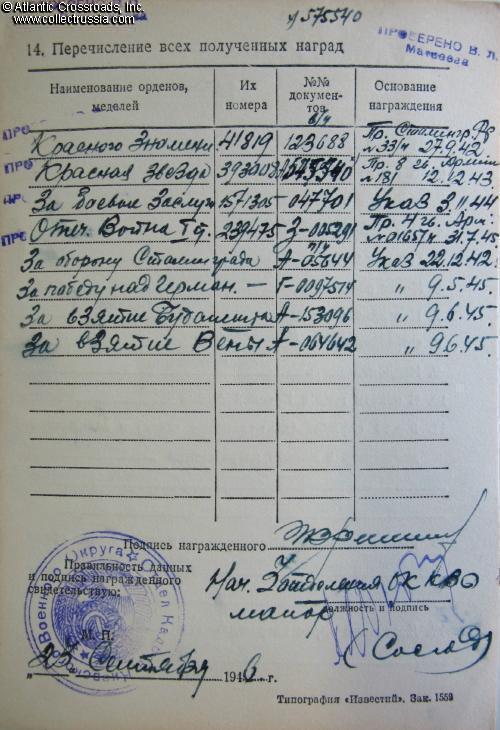 © Atlantic Crossroads, Inc.
www.collectrussia.com
у 575540
ПРОВЕРЕНО В. Л.
Матвеева
14. Перечисление всех полученных наград
Наименование орденов, медалей Их номера №№ документов Основание награждения
б/ч
Красного Знамени 41819 123688 Пр. Сталингр. Ф. №33/н 27.9.42
Красная Звезда 393008 Пр. 8 гв. Армии №18/ 12.12.43
За боевые Заслуги 1571305 -047701 Указ 3.11.44
Отеч. Война I ст. 239475 З-005291 Пр. 4 гв. Арм. №0165/н 31.7.45
За оборону Сталинграда А-05644 Указ 22.12.42
За победу над Герман. — Г-0097514 " 9.5.45.
За взятие Будапешта А-153096 " 9.6.45.
За взятие Вены А-064642 " 9.6.45.
Подпись награжденного
Правильность данных
и подпись награжденного
свидетельствую:
Нач. ОК КВО
майор
должность и подпись
М. П.
„25 Сентября 1946 г.
Типография «Известий». Зак. 1559